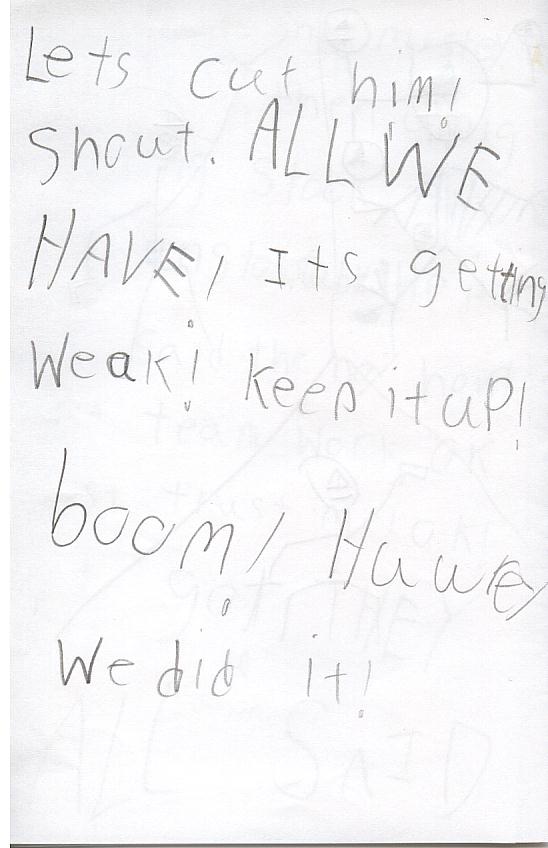 Lets cut him!
Shout. ALL WE
HAVE, Its getting
Weak! keep it up!
boom! Huwrey
We did it!